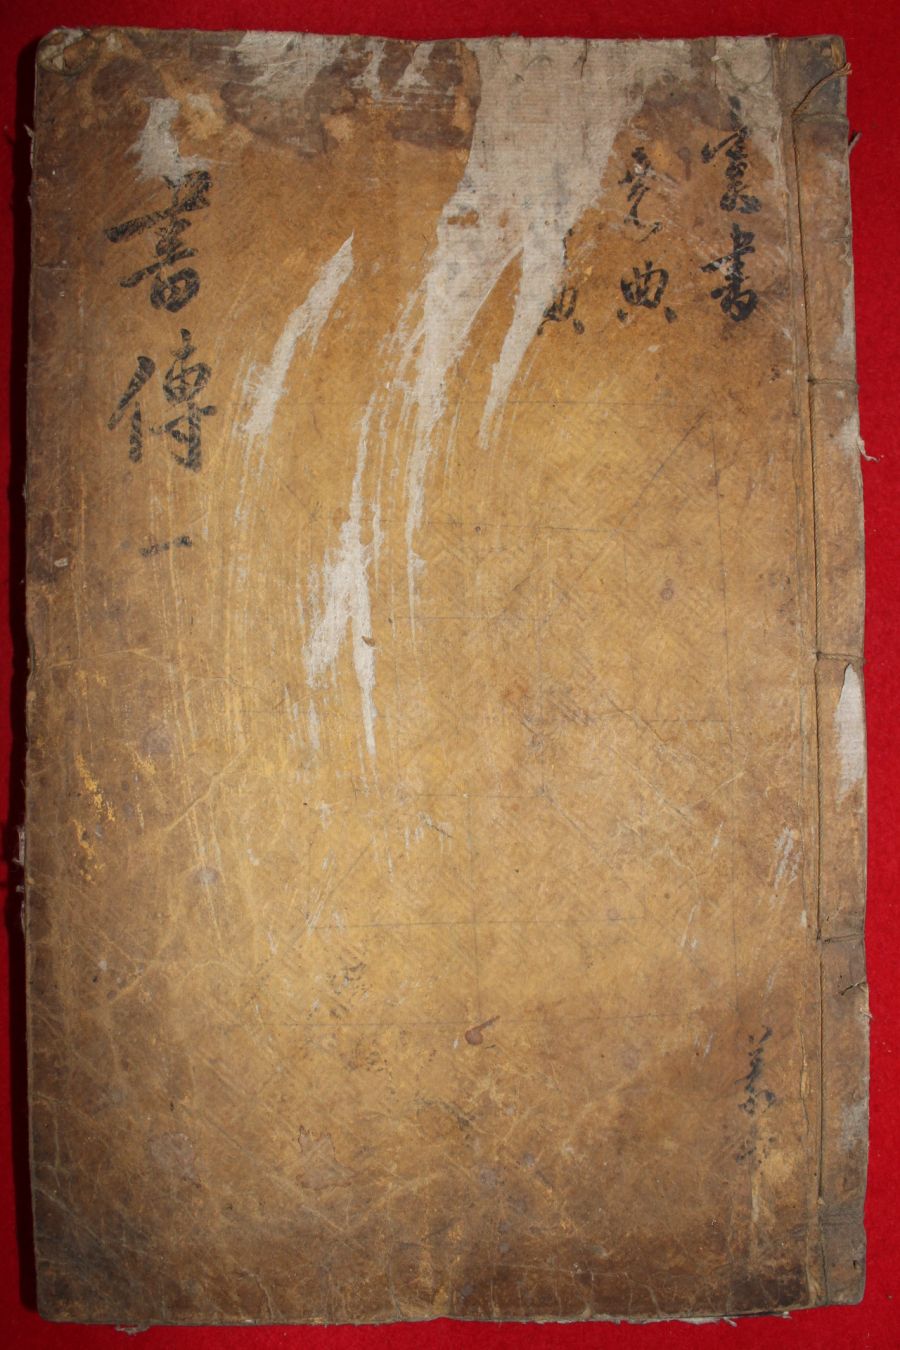 虞書
堯典
典
書傳 一